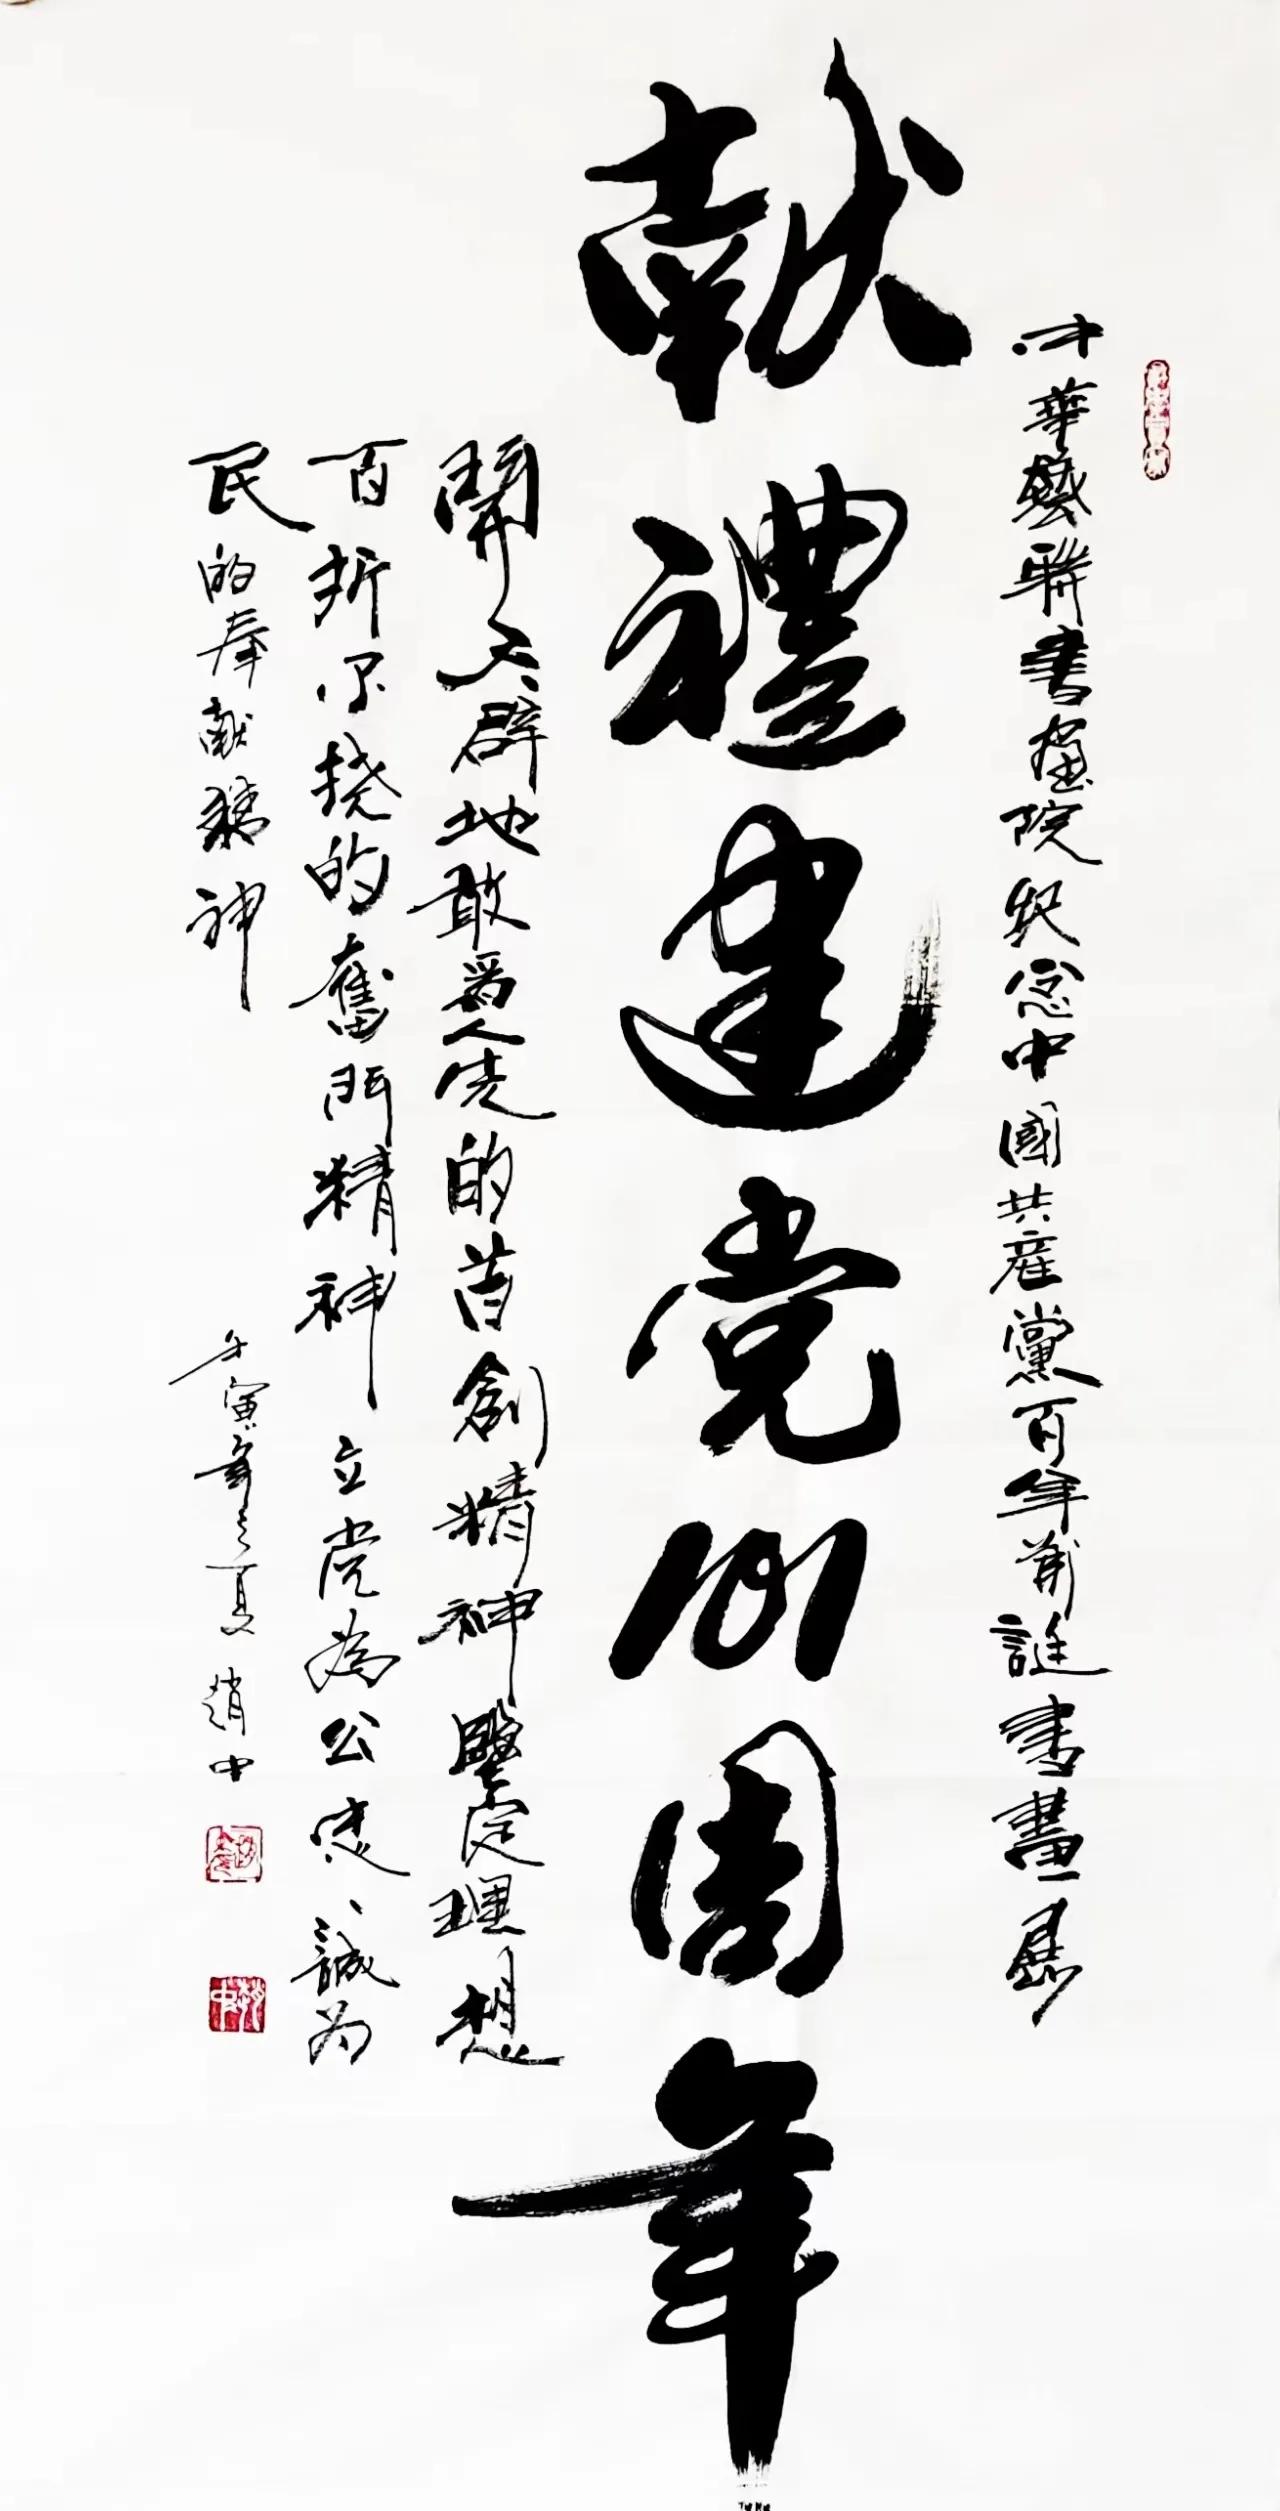 中華藝聯書畫院纪念中國共産黨百年華誕書畫展
献禮建党101周年
開天辟地敢爲人先的首創精神堅定理想
百折不挠的奮鬥精神立党为公忠誠为
民的奉献精神
壬寅年之夏趙中
趙中